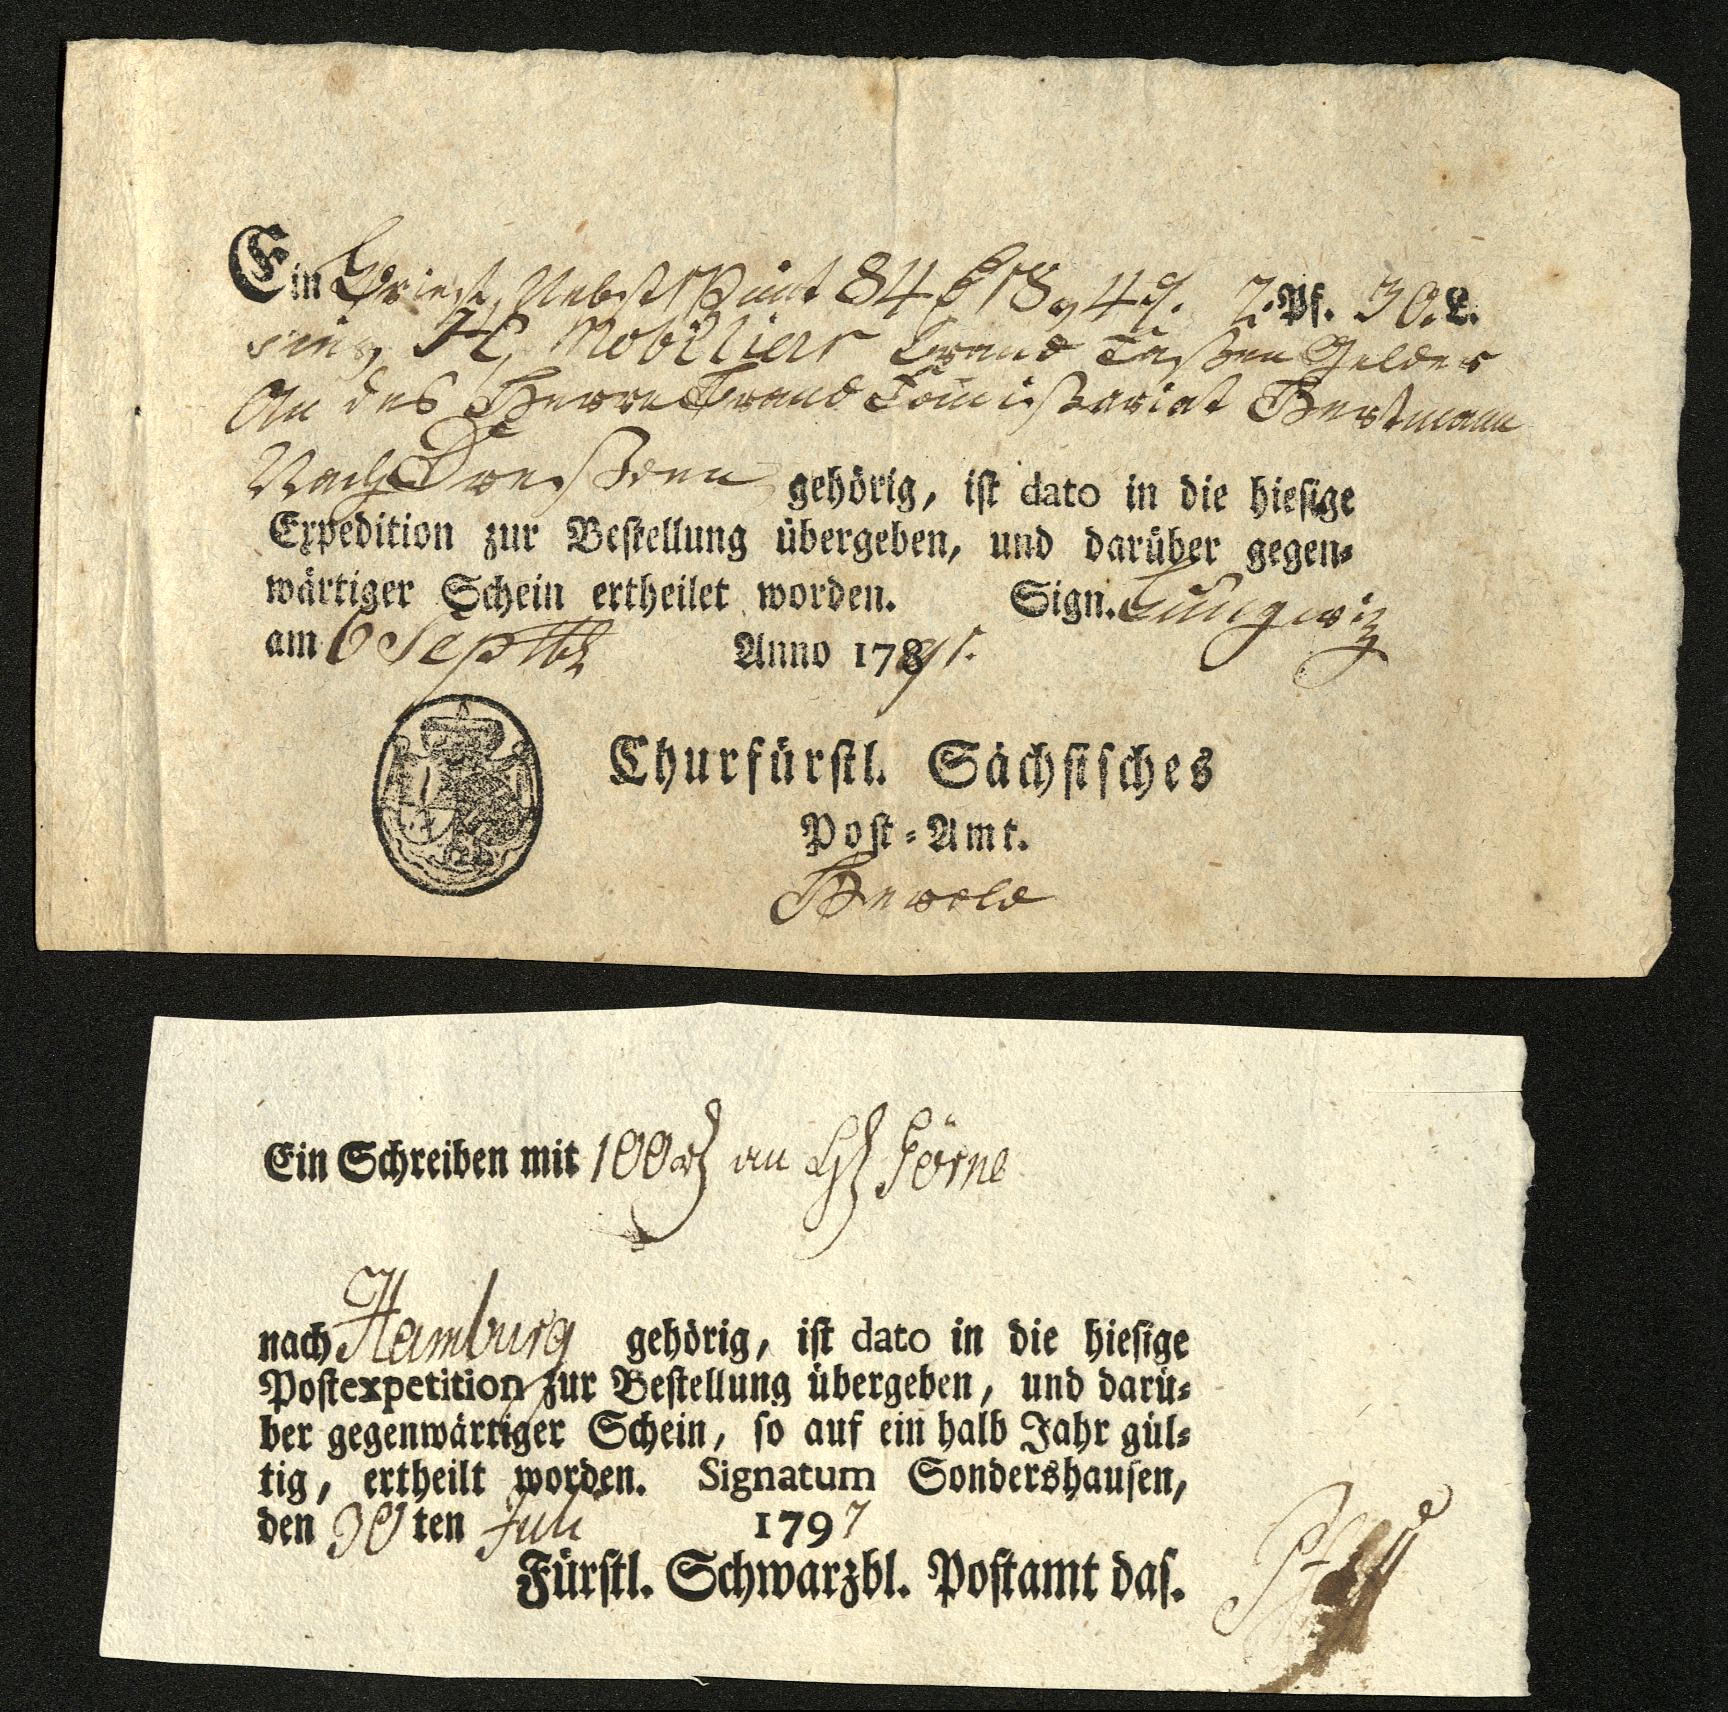 Ein Brief, Nebst Paket 84 18 4 2. Pf. 30. L.
Mobiliar Brand Caßen Gelder
An des Herrn Brand Commißariat
Nach Dreßden gehörig, ist dato in die hiesige
Expedition zur Bestellung übergeben, und darüber gegen-
wärtiger Schein ertheilet worden. Sign. Lungwiz
am 6 Septbr Anno 1791.
Churfürstl. Sächsisches
Post-Amt.
Ein Schreiben mit 100 an Görne
nach Hamburg gehörig, ist dato in die hiesige
Postexpetition zur Bestellung übergeben, und darü-
ber gegenwärtiger Schein, so auf ein halb Jahr gül-
tig, ertheilt worden. Signatum Sondershausen,
den 30ten Juli 1797
Fürstl. Schwarzbl. Postamt das.